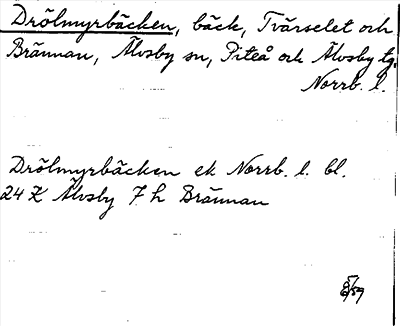 Drölmyrbäcken, bäck, Tvärselet och
Brännan, Älvsby sn, Piteå och Älvsby tg.
Norrb. l.
Drölmyrbäcken ek Norrb. l. bl.
24 K Älvsby 7 h Brännan